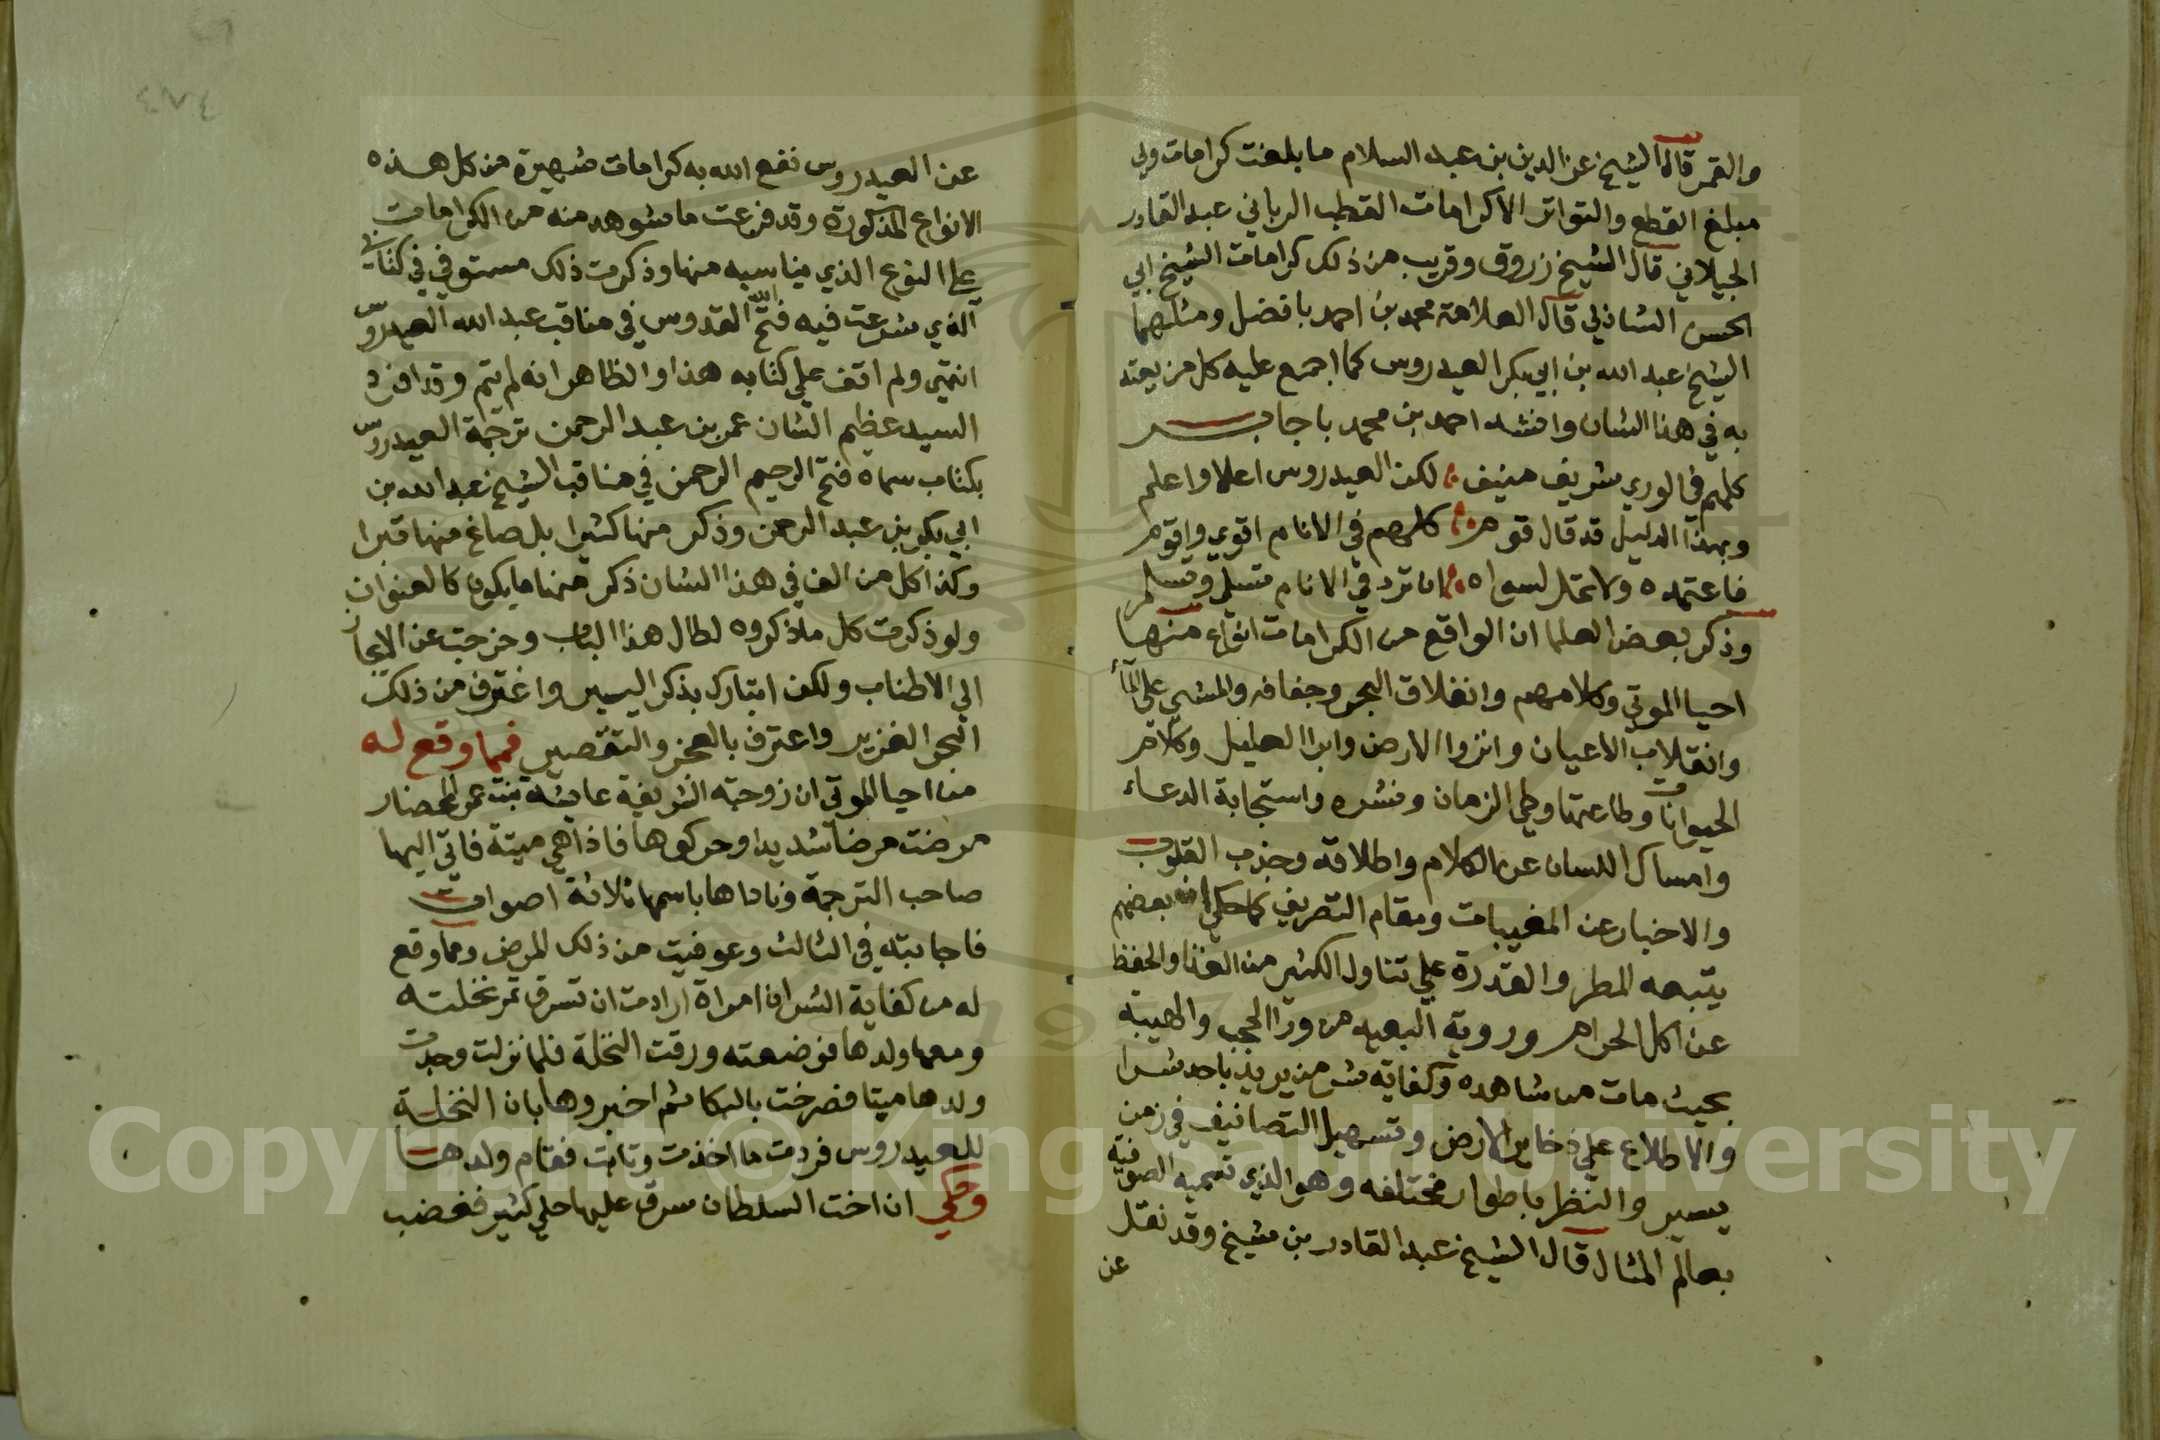 والقمر قال الشيخ عز الدين بن عبد السلام ما بلغت كرامات ولي
مبلغ القطع والتواتر الا كرامات القطب الرباني عبد القادر
الجيلاني قال الشيخ زروق وقريب من ذلك كرامات الشيخ ابي
الحسن الشاذلي قال العلامة محمد بن احمد بافضل ومثلهما
الشيخ عبد الله بن ابي بكر العيدروس كما اجمع عليه كل من يعتد
به في هذا الشان وانشد احمد بن محمد باجابر
كلهم في الوري شريف منيف لكن العيدروس اعلا واعلم
وبهذا الدليل قد قال قوم كلهم في الانام اقوي واقوم
فاعتمده ولا تمل لسواه ان ترد في الانام تسلم وتسلم
وذكر بعض العلما ان الواقع من الكرامات انواع منها
احيا الموتي وكلامهم وانفلاق البحر وجفافه والمشي علي الماء
وانقلاب الاعيان وانزوا الارض وابرا العليل وكلام
الحيوانات وطاعتها وطي الزمان ونشره واستجابة الدعاء
وامساك اللسان عن الكلام واطلاقه وجذب القلوب
والاخبار عن المغيبات ومقام التصريف كما حكي ان بعضهم
يتبعه المطر والقدرة علي تناول الكثير من الغذا والحفظ
عن اكل الحرام وروية البعيد من ورا الحجب والهيبة
بحيث مات من شاهده وكفاية شر من يريد باحد شرا
والاطلاع علي ذخاير الارض وتسهيل التصانيف في زمن
يسير والنظر باطوار مختلفه وهو الذي تسميه الصوفية
بعالم المثال قال الشيخ عبد القادر بن شيخ وقد نقل
عن
٤٧٤
عن العيدروس نفع الله به كرامات شهيرة من كل هذه
الانواع المذكورة وقد فرعت ما شوهد منه من الكرامات
علي النوع الذي يناسبه منها وذكرت ذلك مستوفي في كتابي
الذي شرعت فيه فتح الله القدوس في مناقب عبد الله العيدروس
انتهي ولم اقف علي كتابه هذا والظاهر انه لم يتم وقد افرد
السيد عظيم الشان عمر بن عبد الرحمن ترجمة العيدروس
بكتاب سماه فتح الرحيم الرحمن في مناقب الشيخ عبد الله بن
ابي بكر بن عبد الرحمن وذكر منها كثيرا بل صاغ منها تبرا
وكذا كل من الف في هذا الشان ذكر منها ما يكون كالعنوان
ولو ذكرت كل ما ذكروه لطال هذا الباب وخرجت عن الايجاز
الي الاطناب ولكن اتبارك بذكر اليسير واغترف من ذلك
البحر الغزير واعترف بالعجز والتقصير فمما وقع له
من احيا الموتي ان زوجته الشريفة عايشة بنت عمر المحضار
مرضت مرضا شديدا وحركوها فاذا هي ميتة فاتي اليها
صاحب الترجمة وناداها باسمها ثلاثة اصوات
فاجابته في الثالث وعوفيت من ذلك المرض ومما وقع
له من كفاية الشر ان امراة ارادت ان تسرق تمر نخلته
ومعها ولدها فوضعته ورقت النخلة فلما نزلت وجدت
ولدها ميتا فصرخت بالبكا ثم اخبروها بان النخلة
للعيدروس فردت ما اخذت وتابت فقام ولدها
وحكي ان اخت السلطان سرق عليها حلي كثير فغضب
Copyright © King Saud University